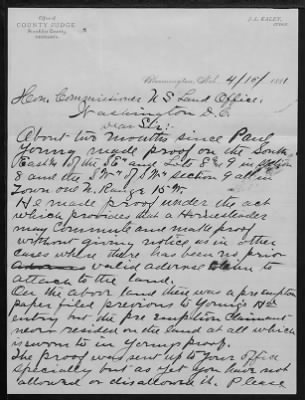 Office of
COUNTY JUDGE
Franklin County,
NEBRASKA.
J. L. KALEY,
JUDGE.
Bloomington, Neb. 4/15/1881
Hon. Commissioner U S Land Office.
Washington D.C.
Dear Sir:-
About two months since Paul
Young made proof on the South
East 1/4 of the SE 1/4 and Lots 8 & 9 in section
8 and the S W 1/4 of S W 1/4 section 9 all in
Town one N. Range 15 W.
He made proof under the act
which provides that a Homesteader
may commute and make proof
without giving notice as in other
cases where there has been no prior
valid adverse claim to
attach to the land.
On the above land there was a pre emption
paper filed previous to Young's Hd
entry but the pre emption Claimant
never resided on the land at all which
is sworn to in Young's proof.
The proof was sent up to your office
specially but as yet you have not
allowed or disallowed it. Please